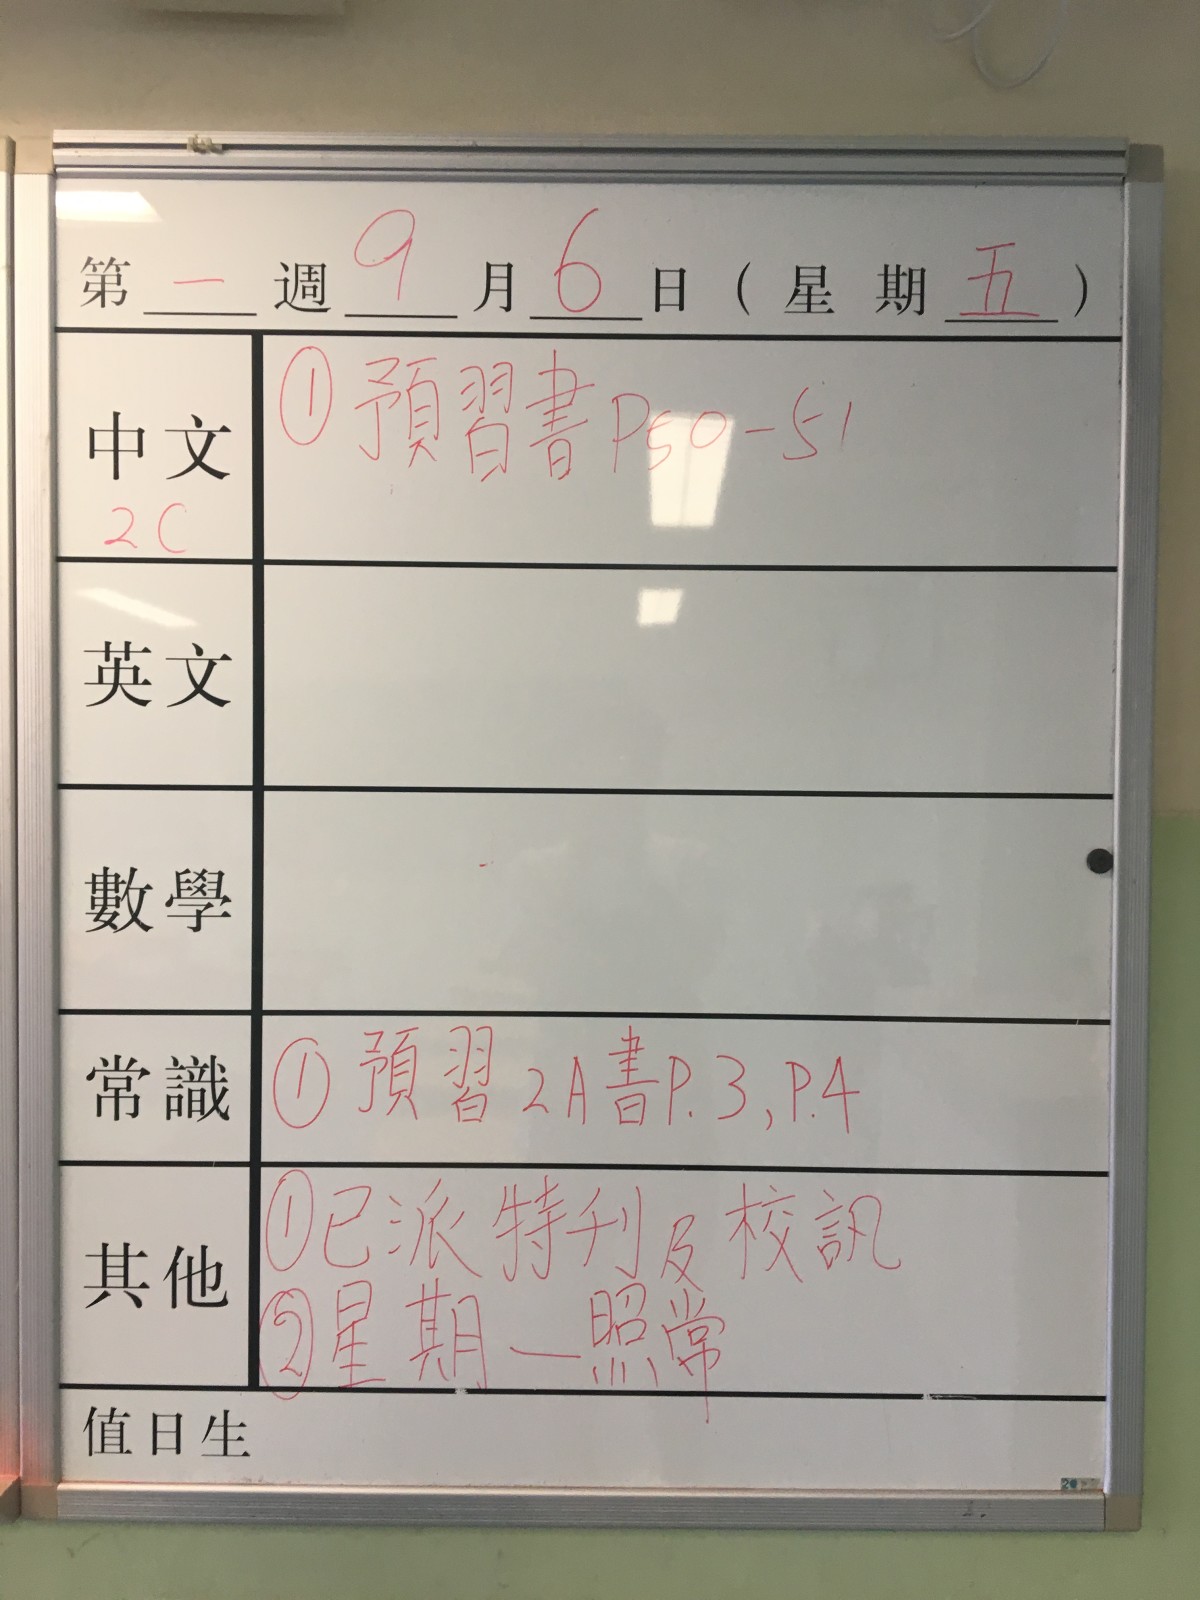 第一週9月6日（星期五）
中文
2C
①預習書P50-51
英文
數學
常識
①預習2A書P.3,P.4
其他
①已派特刊及校訊
②星期一照常
值日生